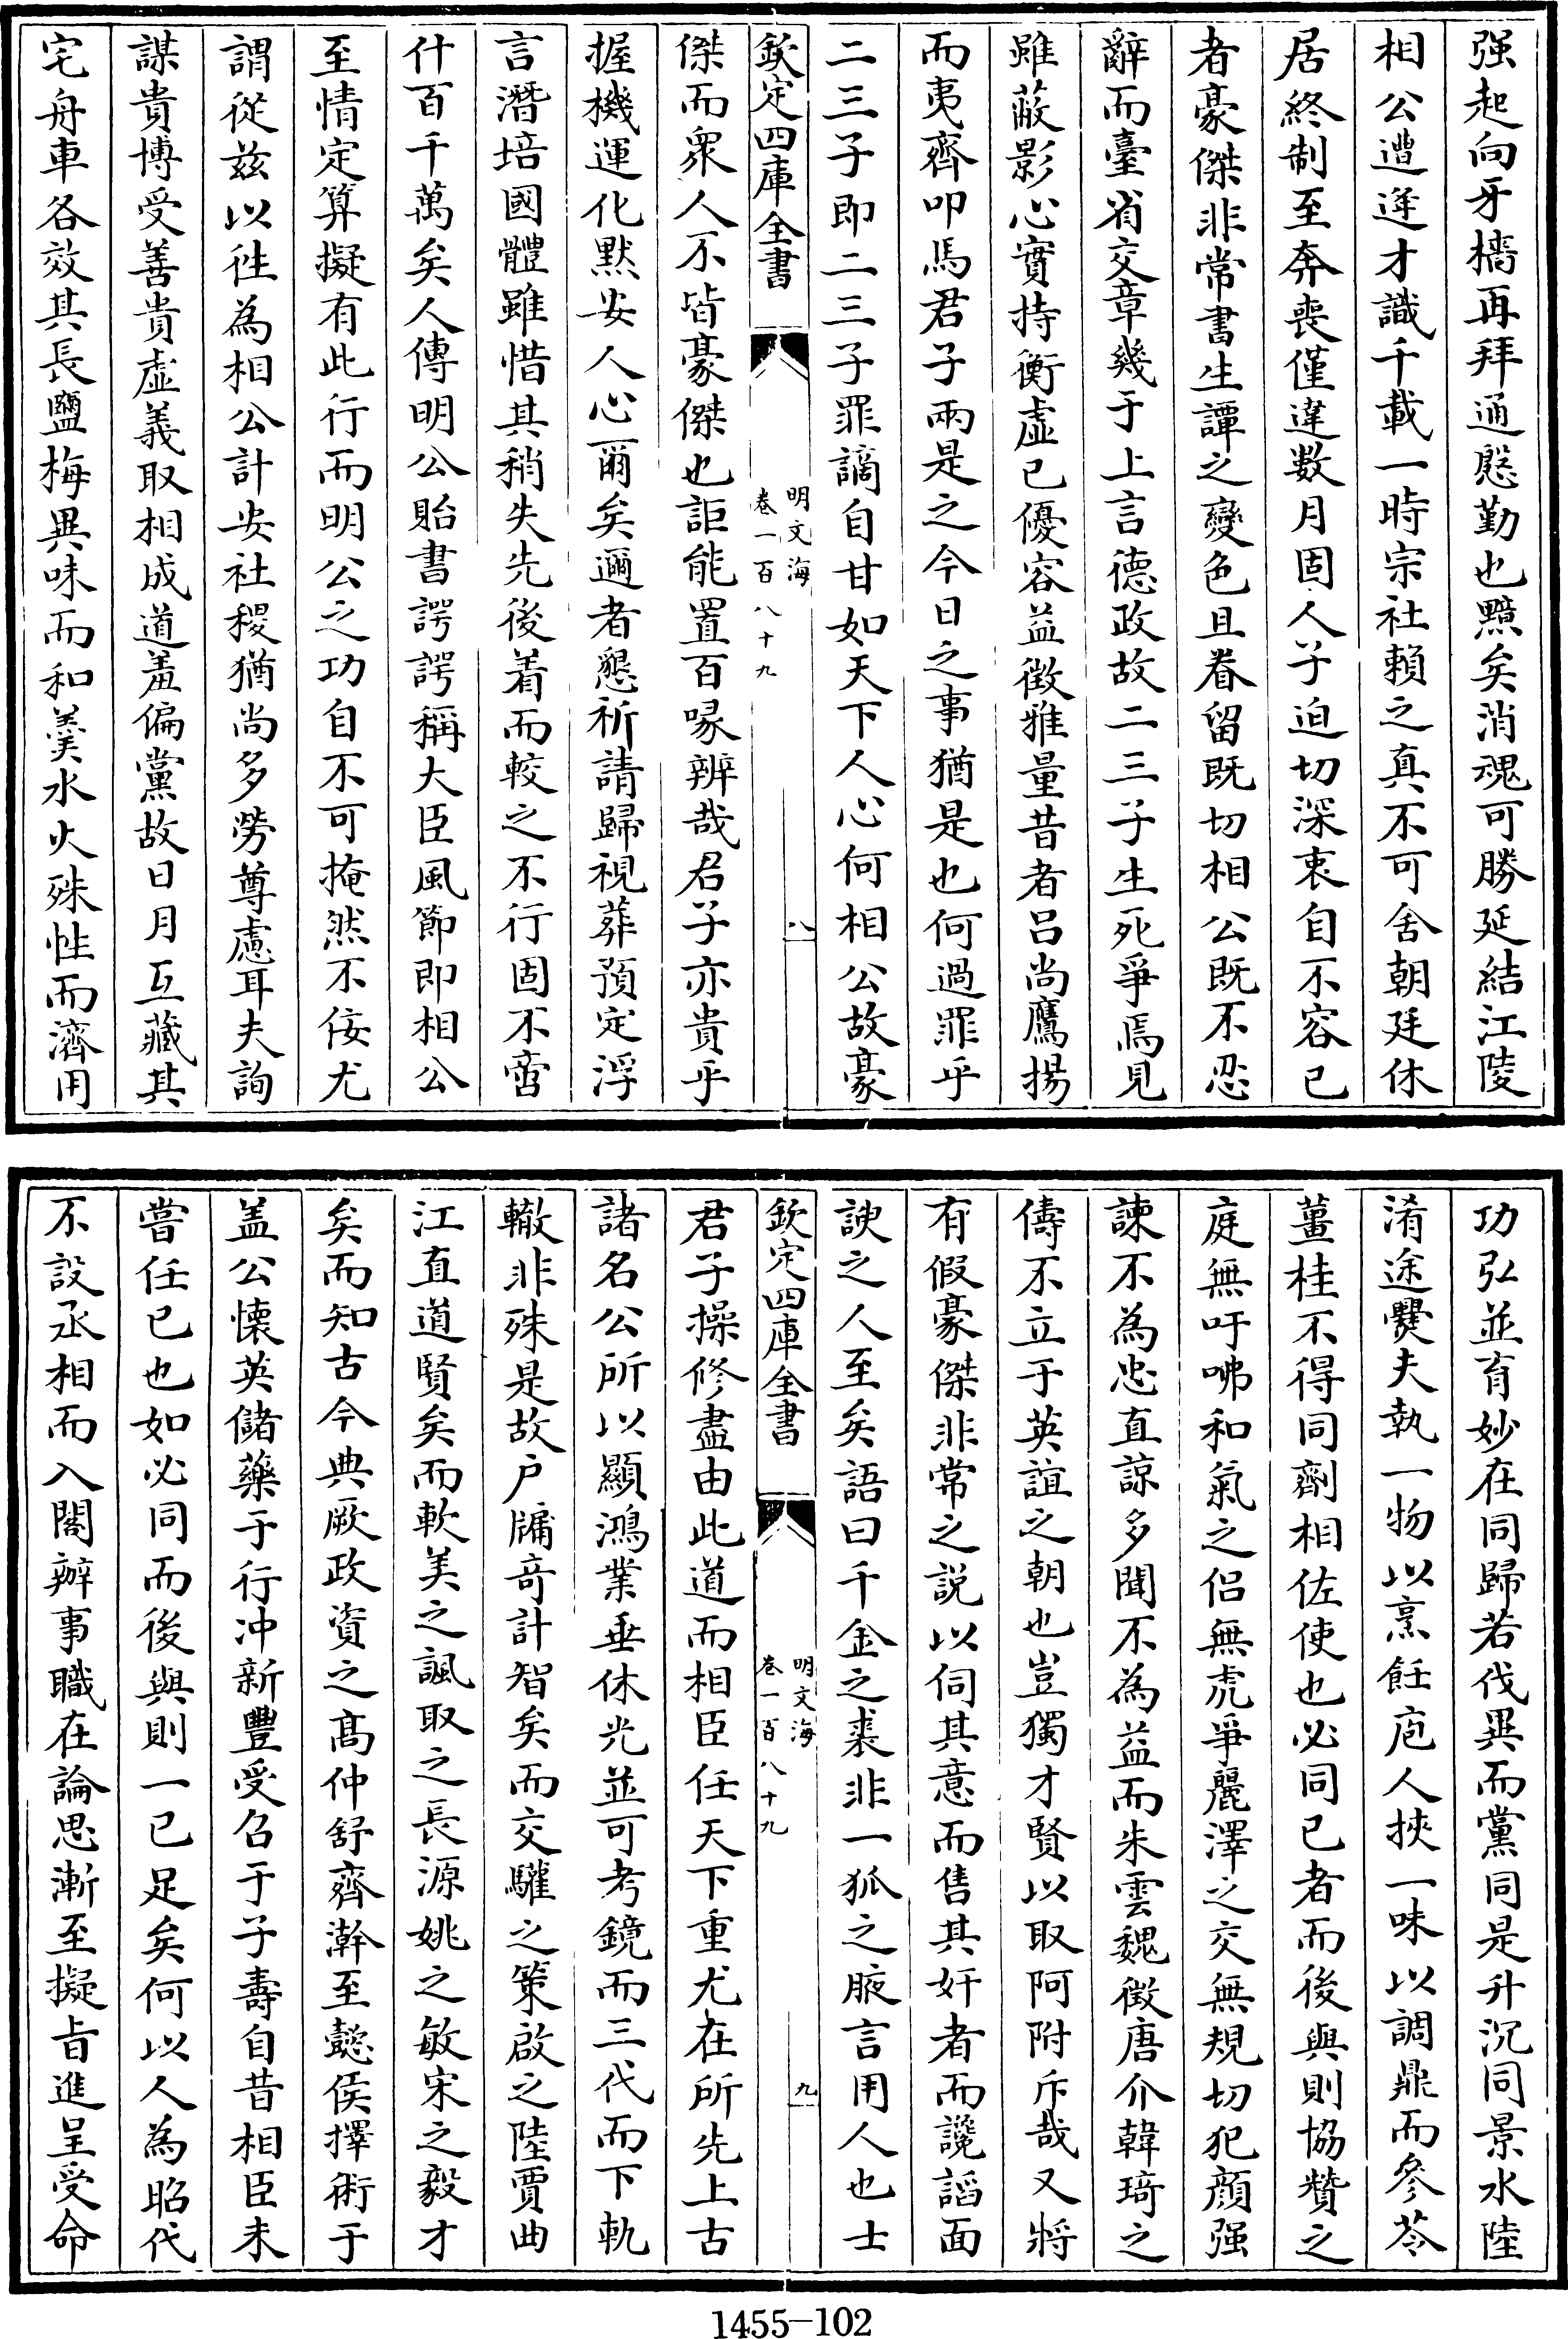 强起向牙檣再拜通慇勤也黯矣消魂可勝延結江陵
相公遭逢才識千載一時宗社賴之真不可舍朝廷休
居終制至奔喪僅違數月固人子迫切深衷自不容已
者豪傑非常書生譚之變色且眷留既切相公既不忍
辭而臺省交章幾于上言德政故二三子生死爭焉見
雖蔽影心實持衡虛已優容益徵雅量昔者呂尚鷹揚
而夷齊叩馬君子兩是之今日之事猶是也何過罪乎
二三子即二三子罪謫自甘如天下人心何相公故豪
欽定四庫全書
明文海
卷一百八十九
八
傑而衆人不皆豪傑也詎能置百喙辨哉君子亦貴乎
握機運化默安人心爾矣邇者懇祈請歸視葬預定浮
言潛培國體雖惜其稍失先後着而較之不行固不啻
什百千萬矣人傳明公貽書諤諤稱大臣風節即相公
至情定算擬有此行而明公之功自不可掩然不佞尤
謂從兹以徃為相公計安社稷猶尚多勞尊慮耳夫詢
謀貴博受善貴虛義取相成道羞偏黨故日月互藏其
宅舟車各效其長鹽梅異味而和羹水火殊性而濟用
功弘並育妙在同歸若伐異而黨同是升沉同景水陸
淆途爨夫執一物以烹飪庖人挾一味以調鼎而參苓
薑桂不得同劑相佐使也必同已者而後與則協贊之
庭無吁咈和氣之侣無虎爭麗澤之交無規切犯顔强
諫不為忠直諒多聞不為益而朱雲魏徵唐介韓琦之
儔不立于英誼之朝也豈獨才賢以取阿附斥哉又將
有假豪傑非常之説以伺其意而售其奸者而讒謟面
諛之人至矣語曰千金之裘非一狐之腋言用人也士
欽定四庫全書
明文海
卷一百八十九
九
君子操修盡由此道而相臣任天下重尤在所先上古
諸名公所以顯鴻業垂休光並可考鏡而三代而下軌
轍非殊是故户牖奇計智矣而交驩之策啟之陸賈曲
江直道賢矣而軟美之諷取之長源姚之敏宋之毅才
矣而知古今典厥政資之髙仲舒齊澣至懿侯擇術于
盖公懷英儲藥于行冲新豐受召于子壽自昔相臣未
嘗任已也如必同而後與則一已足矣何以人為昭代
不設丞相而入閣辦事職在論思漸至擬旨進呈受命
1455-102